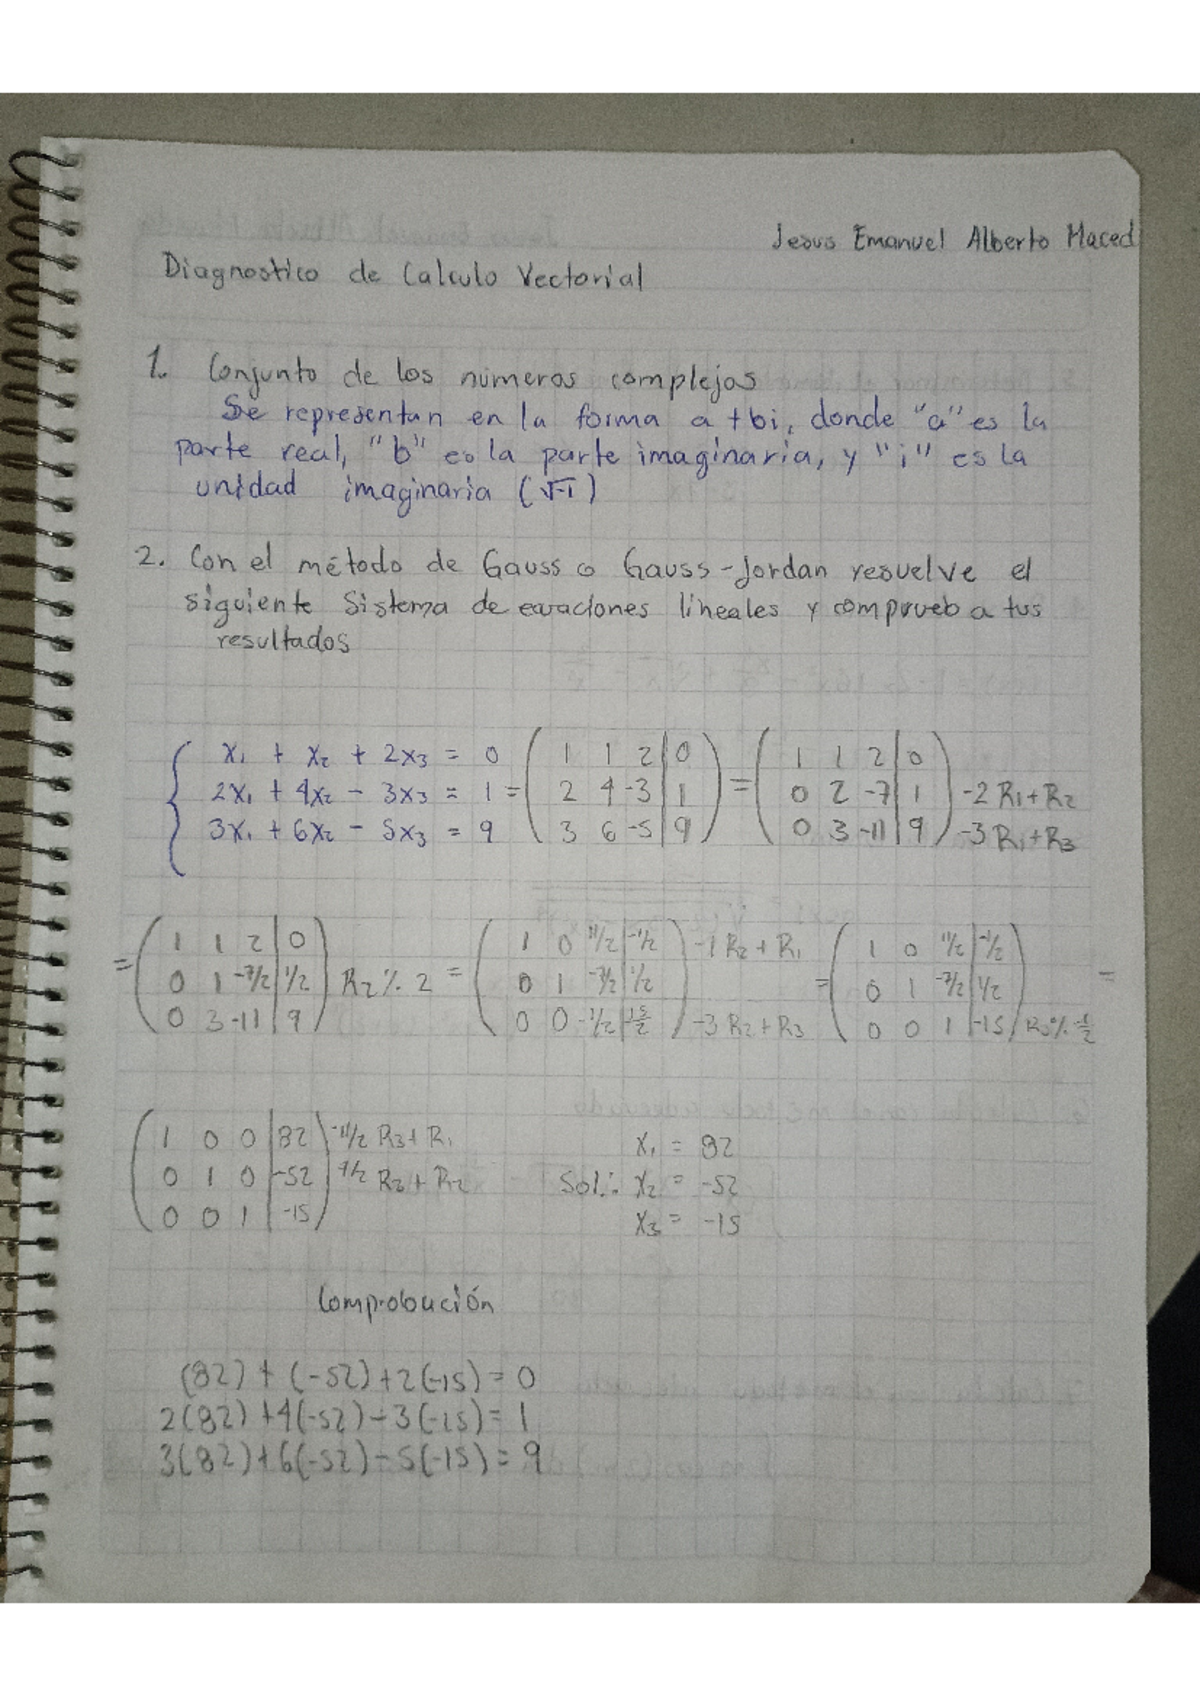 Jesus Emanuel Alberto Maced
Diagnostico de Calculo Vectorial
1. Conjunto de los números complejos
Se representan en la forma a + bi, donde "a" es la
parte real, "b" es la parte imaginaria, y "i" es la
unidad imaginaria (√-1)
2. Con el método de Gauss o Gauss-Jordan resuelve el
siguiente Sistema de ecuaciones lineales y comprueba tus
resultados
x₁ + x₂ + 2x₃ = 0 ( 1 1 2 | 0 ) ( 1 1 2 | 0 )
2x₁ + 4x₂ - 3x₃ = 1 = ( 2 4 -3 | 1 ) = ( 0 2 -7 | 1 ) -2R₁+R₂
3x₁ + 6x₂ - 5x₃ = 9 ( 3 6 -5 | 9 ) ( 0 3 -11 | 9 ) -3R₁+R₃
( 1 1 2 | 0 ) ( 1 0 11/2 | -1/2 ) -1R₂+R₁ ( 1 0 11/2 | -1/2 )
= ( 0 1 -7/2 | 1/2 ) R₂ % 2 = ( 0 1 -7/2 | 1/2 ) = ( 0 1 -7/2 | 1/2 ) =
( 0 3 -11 | 9 ) ( 0 0 -1/2 | 15/2 ) -3R₂+R₃ ( 0 0 1 | -15 ) R₃ % -1/2
( 1 0 0 | 82 ) -11/2 R₃+R₁ x₁ = 82
( 0 1 0 | -52 ) 7/2 R₃+R₂ Sol: x₂ = -52
( 0 0 1 | -15 ) x₃ = -15
Comprobación
(82) + (-52) + 2(-15) = 0
2(82) + 4(-52) - 3(-15) = 1
3(82) + 6(-52) - 5(-15) = 9